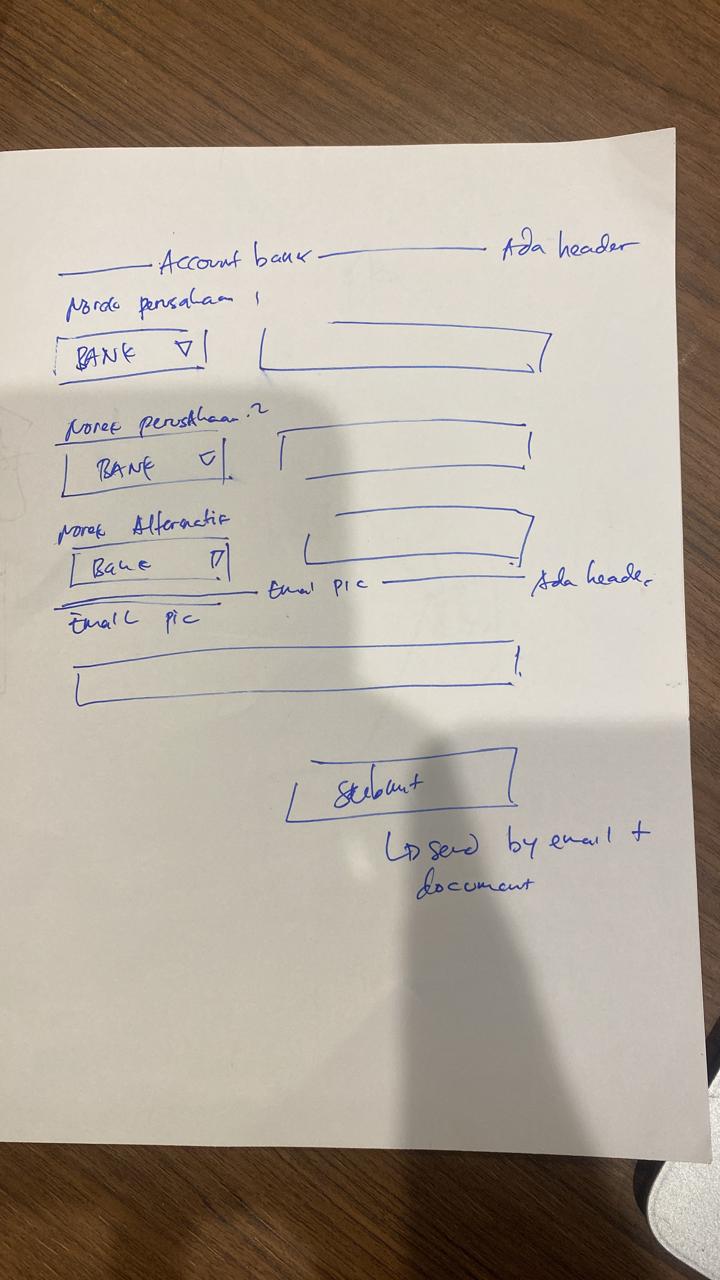 Account bank Ada header
Norek perusahaan 1
BANK
Norek perusahaan.2
BANK
Norek Alternatif
Bank
Email pic Ada header
Email pic
Submit
↳ send by email +
document